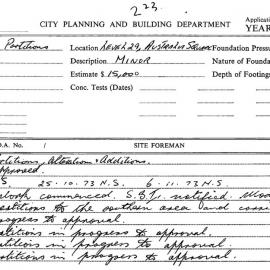 223.
CITY PLANNING AND BUILDING DEPARTMENT
Applicatio
YEAR
Partitions
Location Level 29, Australia Square
Foundation Pressu
Description MINOR
Nature of Founda
Estimate $ 15,000
Depth of Footings
Conc. Tests (Dates)
O.A. No.
SITE FOREMAN
artitions, Alteration & Additions.
pproved.
S. 25.10.73 N.S. 6.11.73 N.S.
commenced. S.B.I. notified.
artitions to the southern area and
rogress to approval.
titions in progress to approval.
titions in progress to approval.
titions in progress to approval.